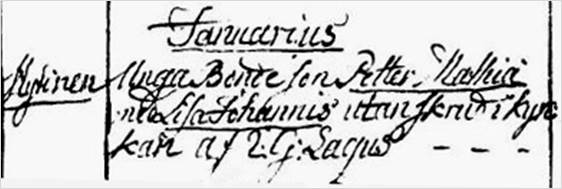 Januarius
Nykinen Unga Bonde Son Petter Mathiæ
Lisa Johannis utan skrud i kyrc
kan af V: G: Lagus - - -